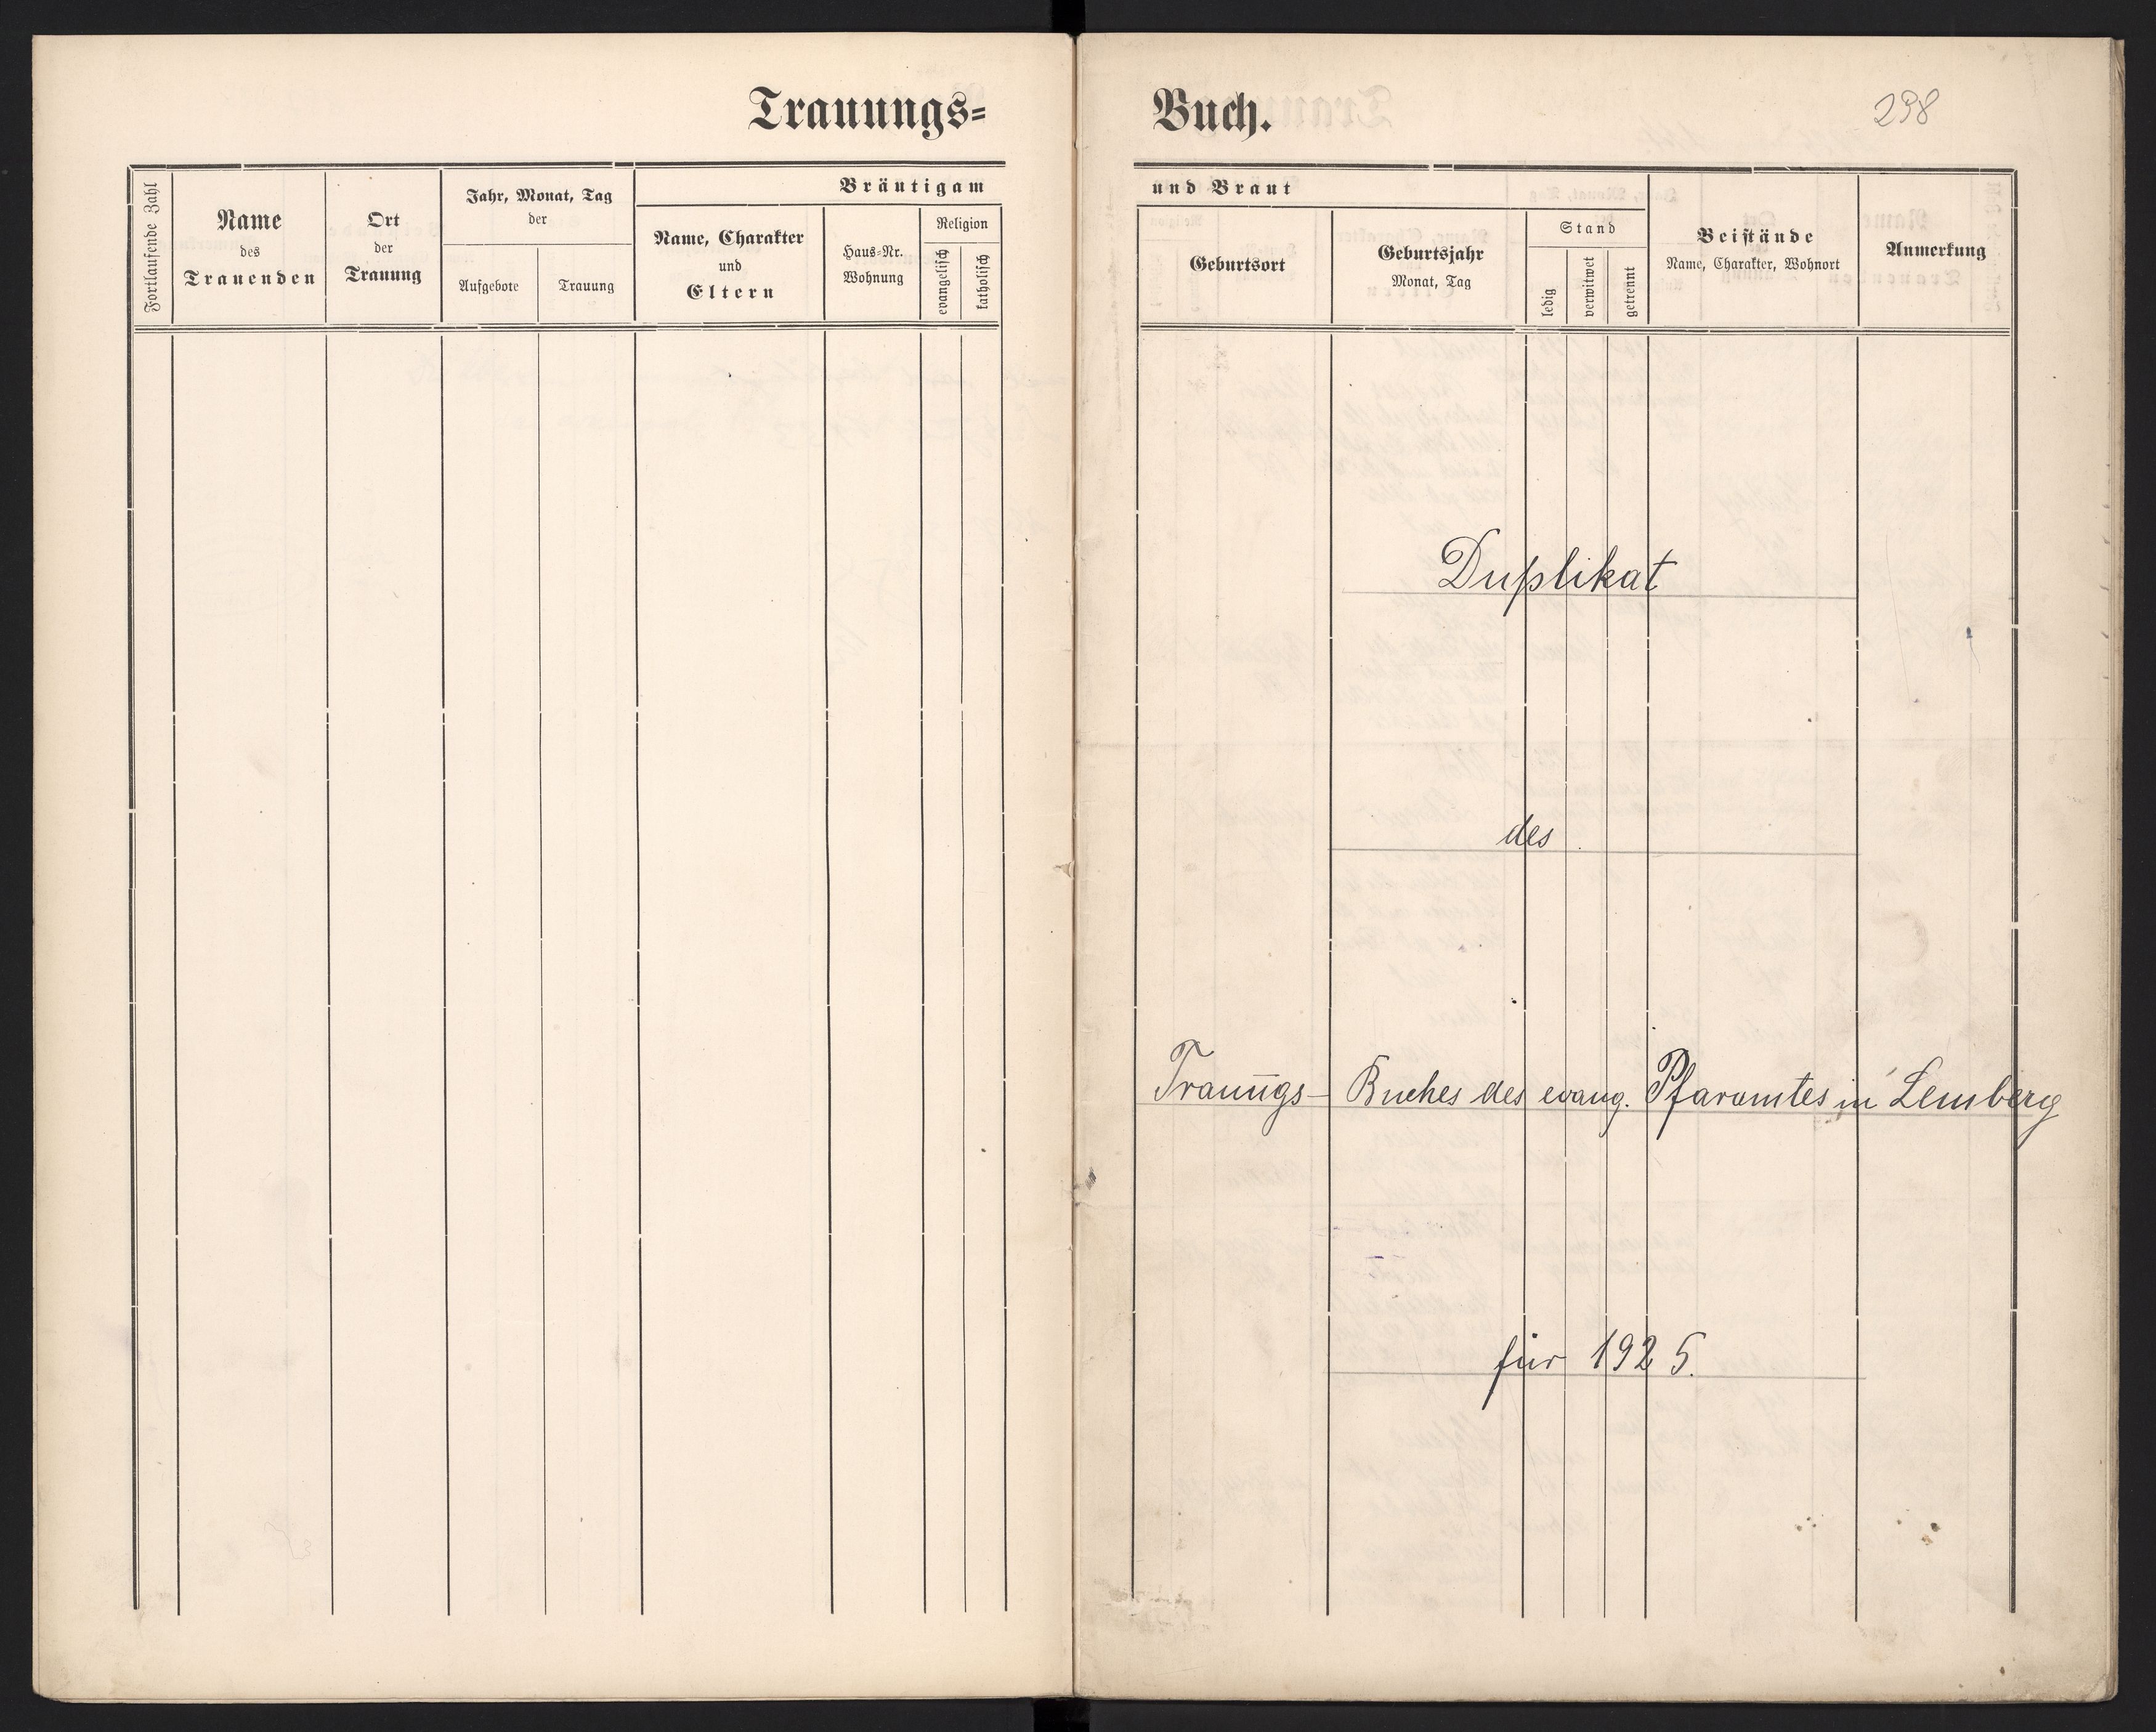 Trauungs=
Fortlaufende Zahl
Name
des
Trauenden
Ort
der
Trauung
Jahr, Monat, Tag
der
Aufgebote
Trauung
Bräutigam
Name, Charakter
und
Eltern
Haus=Nr.
Wohnung
Religion
evangelisch
katholisch
Buch.
298
und Braut
Geburtsort
Geburtsjahr
Monat, Tag
Stand
ledig
verwitwet
getrennt
Beistände
Name, Charakter, Wohnort
Anmerkung
Duplikat
des
Trauūgs- Buches des evang. Pfaramtes in Lemberg
für 1925.